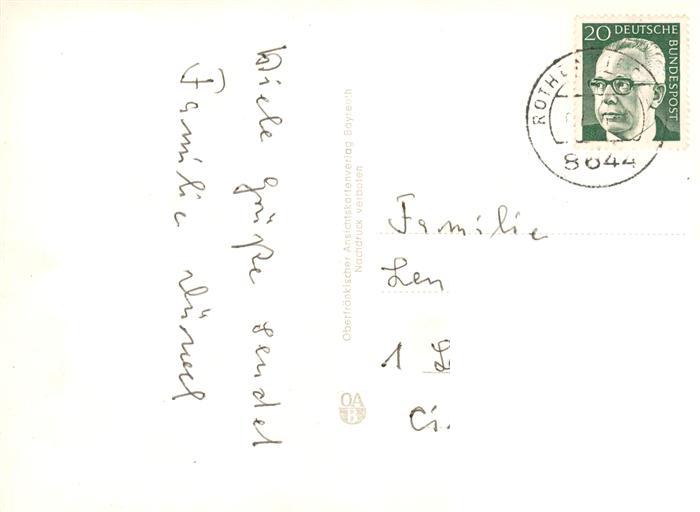 Viele Grüße sendet
Familie
Oberfränkischer Ansichtskartenverlag Bayreuth
Nachdruck verboten
OA
B
20 DEUTSCHE
BUNDESPOST
8644
Familie
Len
1 L
Ci.